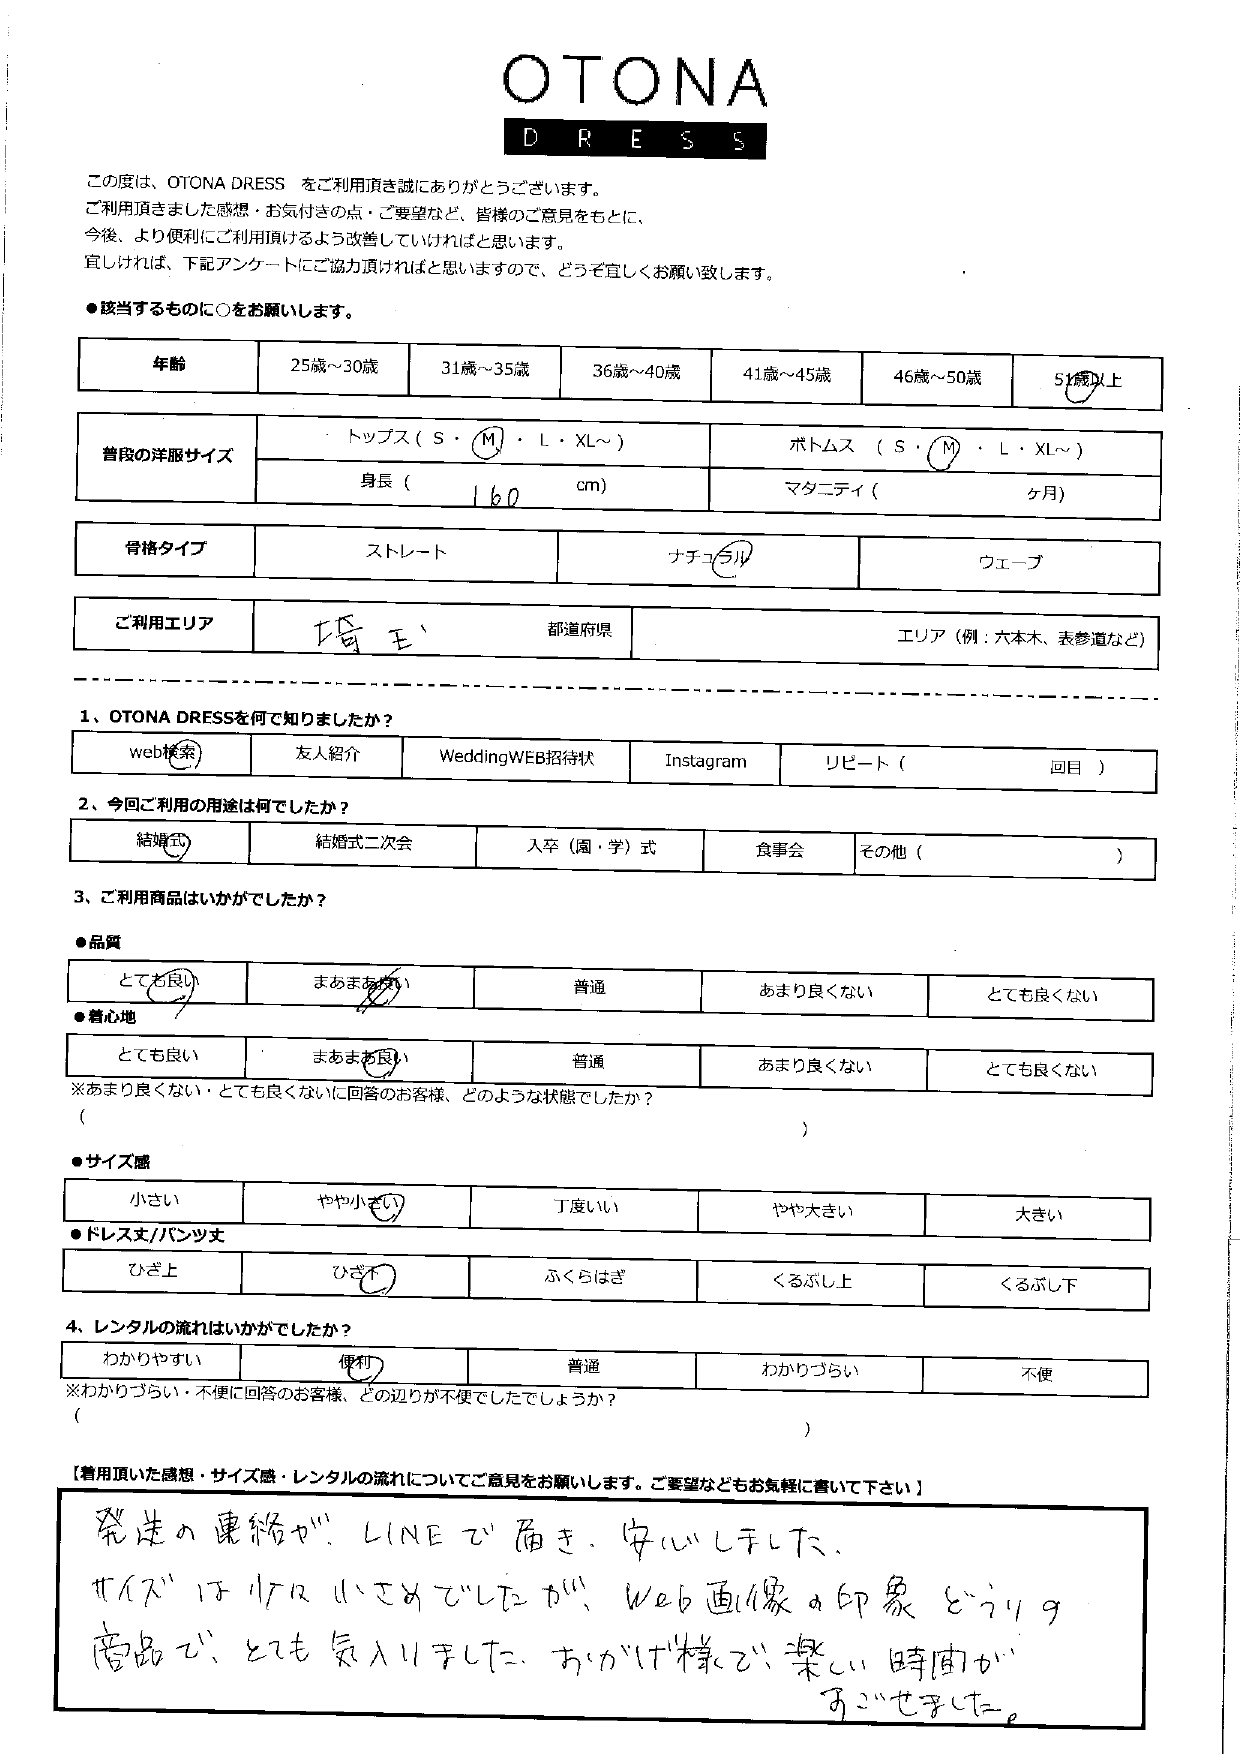 OTONA
DRESS
この度は、OTONA DRESS をご利用頂き誠にありがとうございます。
ご利用頂きました感想・お気付きの点・ご要望など、皆様のご意見をもとに、
今後、より便利にご利用頂けるよう改善していければと思います。
宜しければ、下記アンケートにご協力頂ければと思いますので、どうぞ宜しくお願い致します。
●該当するものに○をお願いします。
年齢 25歳～30歳 31歳～35歳 36歳～40歳 41歳～45歳 46歳～50歳 51歳以上
普段の洋服サイズ トップス ( S ・ M ・ L ・ XL～ ) ボトムス ( S ・ M ・ L ・ XL～ )
身長 ( 160 cm) マタニティ ( ヶ月)
骨格タイプ ストレート ナチュラル ウェーブ
ご利用エリア 埼玉 都道府県 エリア（例：六本木、表参道など）
1、OTONA DRESSを何で知りましたか？
web検索 友人紹介 WeddingWEB招待状 Instagram リピート ( 回目 )
2、今回ご利用の用途は何でしたか？
結婚式 結婚式二次会 入卒（園・学）式 食事会 その他 ( )
3、ご利用商品はいかがでしたか？
●品質
とても良い まあまあ良い 普通 あまり良くない とても良くない
●着心地
とても良い まあまあ良い 普通 あまり良くない とても良くない
※あまり良くない・とても良くないに回答のお客様、どのような状態でしたか？
( )
●サイズ感
小さい やや小さい 丁度いい やや大きい 大きい
●ドレス丈/パンツ丈
ひざ上 ひざ下 ふくらはぎ くるぶし上 くるぶし下
4、レンタルの流れはいかがでしたか？
わかりやすい 便利 普通 わかりづらい 不便
※わかりづらい・不便に回答のお客様、どの辺りが不便でしたでしょうか？
( )
【着用頂いた感想・サイズ感・レンタルの流れについてご意見をお願いします。ご要望などもお気軽に書いて下さい】
発送の連絡が、LINEで届き、安心しました、
サイズは少々小さめでしたが、Web画像の印象どうりの
商品で、とても気入りました、おかげ様で、楽しい時間が
すごせました。